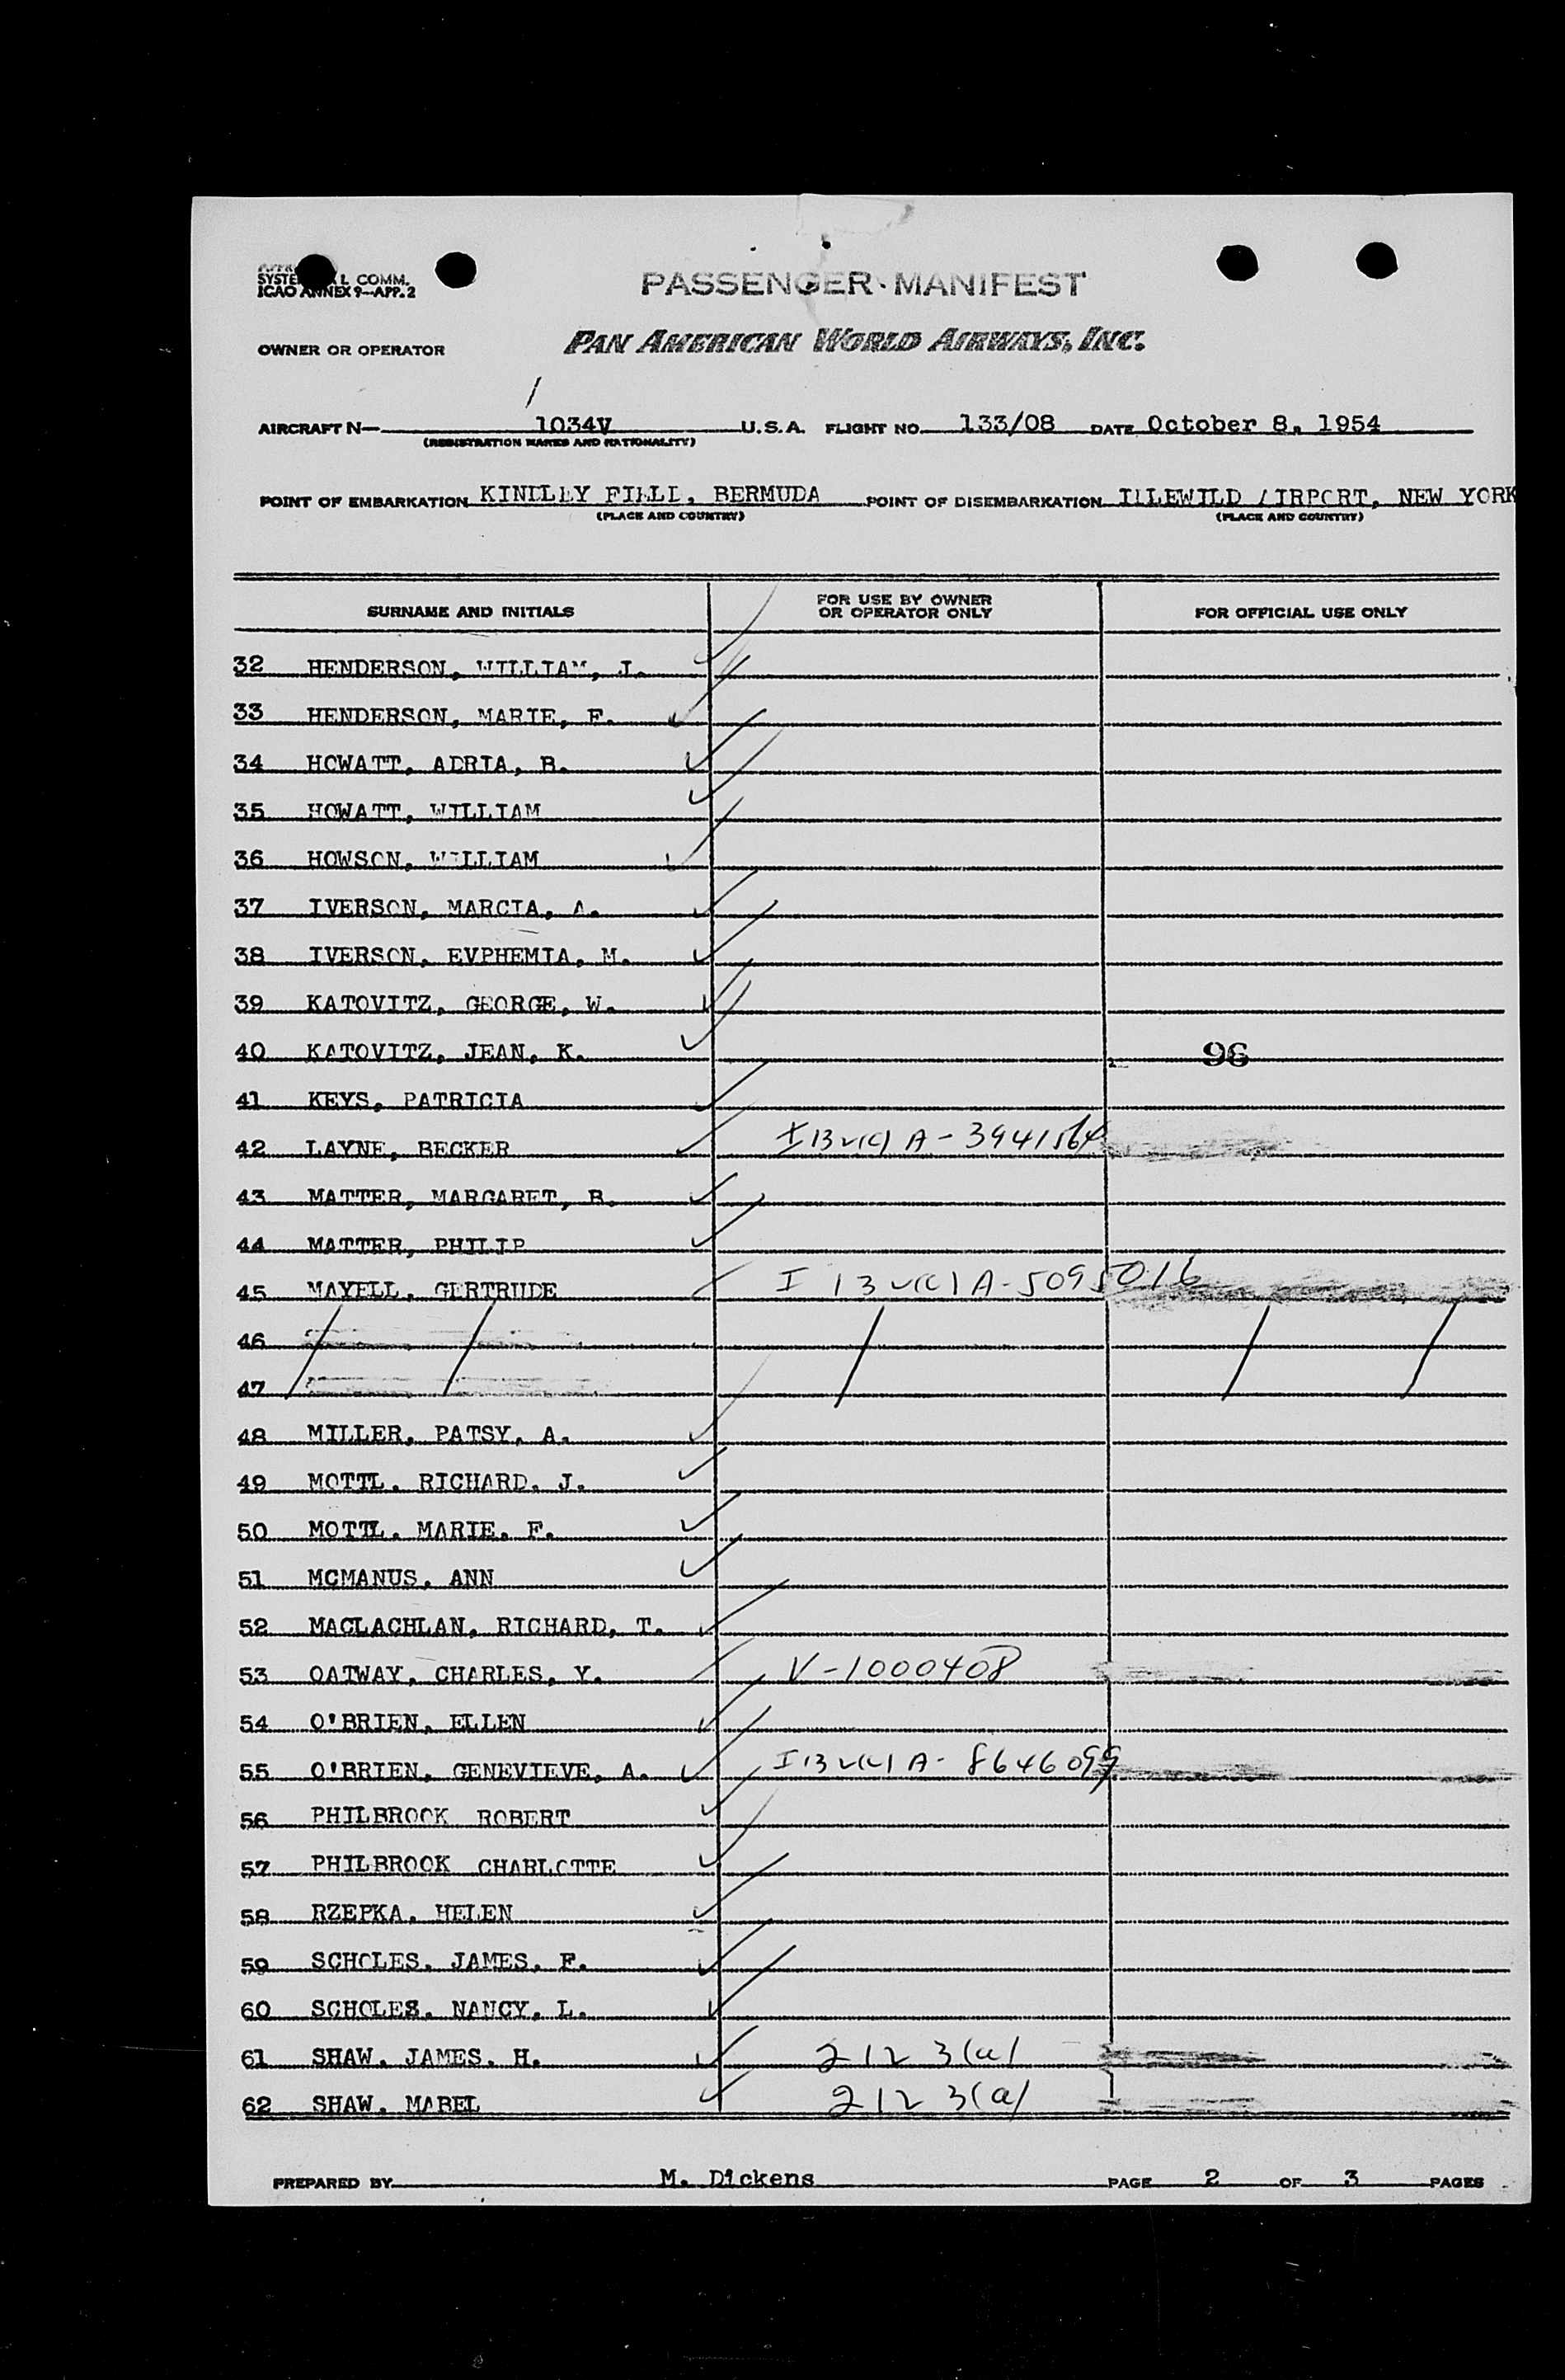 SYSTE L COMM.
ICAO ANNEX 9—APP. 2
PASSENGER MANIFEST
OWNER OR OPERATOR PAN AMERICAN WORLD AIRWAYS, INC.
AIRCRAFT N— 1034V U.S.A. FLIGHT NO. 133/08 DATE October 8, 1954
(REGISTRATION MARKS AND NATIONALITY)
POINT OF EMBARKATION KINDLEY FIELD, BERMUDA POINT OF DISEMBARKATION IDLEWILD AIRPORT, NEW YORK
(PLACE AND COUNTRY) (PLACE AND COUNTRY)
SURNAME AND INITIALS FOR USE BY OWNER OR OPERATOR ONLY FOR OFFICIAL USE ONLY
32 HENDERSON, WILLIAM, J.
33 HENDERSON, MARIE, F.
34 HOWATT, ADRIA, B.
35 HOWATT, WILLIAM
36 HOWSON, WILLIAM
37 IVERSON, MARCIA, A.
38 IVERSON, EVPHEMIA, M.
39 KATOVITZ, GEORGE, W.
40 KATOVITZ, JEAN, K. 96
41 KEYS, PATRICIA
42 LAYNE, BECKER A-3941564
43 MATTER, MARGARET, B.
44 MATTER, PHILIP
45 MAYELL, GERTRUDE A-5095016
46
47
48 MILLER, PATSY, A.
49 MOTTL, RICHARD, J.
50 MOTTL, MARIE, F.
51 MCMANUS, ANN
52 MACLACHLAN, RICHARD, T.
53 OATWAY, CHARLES, Y. V-1000408
54 O'BRIEN, ELLEN
55 O'BRIEN, GENEVIEVE, A. A-8646099
56 PHILBROOK ROBERT
57 PHILBROOK CHARLOTTE
58 RZEPKA, HELEN
59 SCHOLES, JAMES, F.
60 SCHOLES, NANCY, L.
61 SHAW, JAMES, H. 212 3(a)
62 SHAW, MABEL 212 3(a)
PREPARED BY M. Dickens PAGE 2 OF 3 PAGES